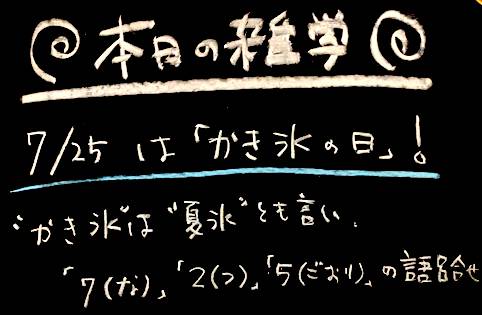 本日の雑学
7/25 は「かき氷の日」!
"かき氷"は"夏氷"とも言い、
「7(な)」「2(つ)」「5(ごおり)」の語呂合せ